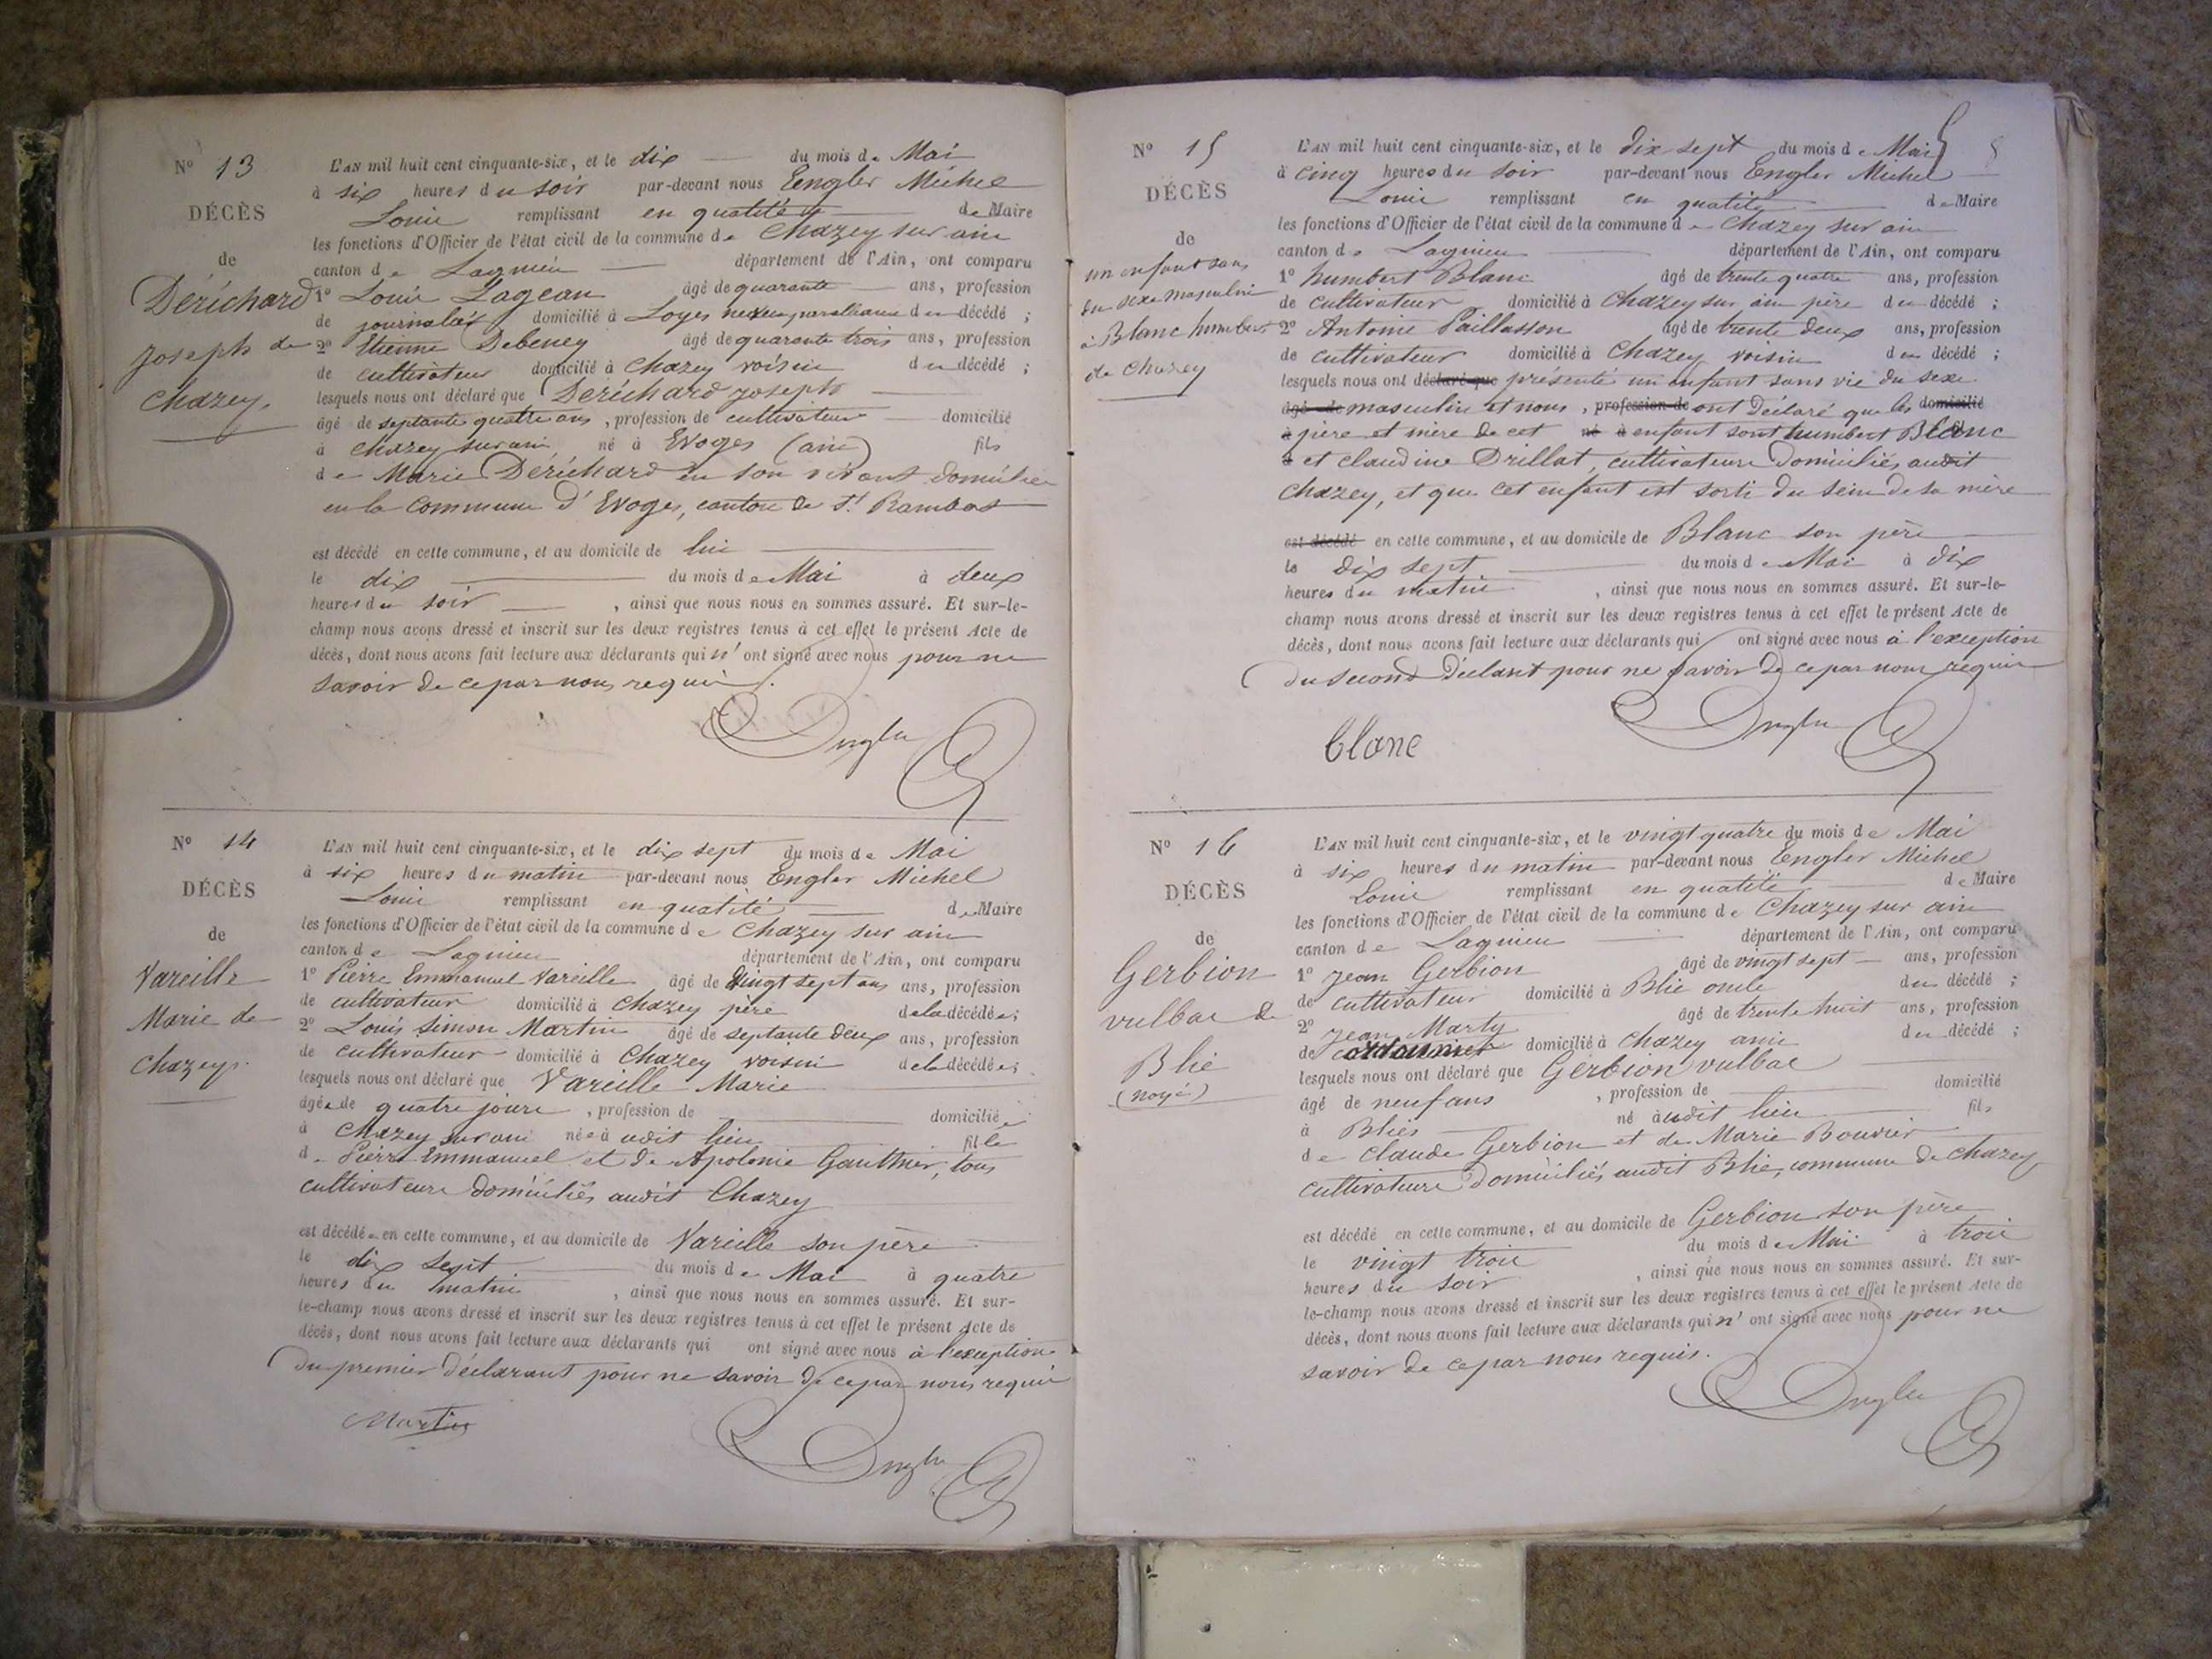 N° 13
DÉCÈS
de
Dérichard
Joseph de
Chazey.
L'AN mil huit cent cinquante-six, et le dix du mois de Mai
à six heures du soir par-devant nous Engler Michel
Louis remplissant en qualité de Maire
les fonctions d'Officier de l'état civil de la commune de Chazey sur ain
canton de Lagnieu département de l'Ain, ont comparu
1° Louis Lagean âgé de quarante ans, profession
de journalier domicilié à Loyes neveu par alliance du décédé ;
2° Etienne Debeney âgé de quarante trois ans, profession
de cultivateur domicilié à Chazey voisin du décédé ;
lesquels nous ont déclaré que Dérichard Joseph
âgé de septante quatre ans, profession de cultivateur domicilié
à Chazey sur ain né à Evoges (ain) fils
de Marie Dérichard en son vivant domicilié
en la commune d'Evoges, canton de St Rambert
est décédé en cette commune, et au domicile de lui
le dix du mois de Mai à deux
heures du soir, ainsi que nous nous en sommes assuré. Et sur-le-
champ nous avons dressé et inscrit sur les deux registres tenus à cet effet le présent Acte de
décès, dont nous avons fait lecture aux déclarants qui n'ont signé avec nous pour ne
savoir de ce par nous requis.
Engler
N° 14
DÉCÈS
de
Vareille
Marie de
Chazey.
L'AN mil huit cent cinquante-six, et le dix sept du mois de Mai
à six heures du matin par-devant nous Engler Michel
Louis remplissant en qualité de Maire
les fonctions d'Officier de l'état civil de la commune de Chazey sur ain
canton de Lagnieu département de l'Ain, ont comparu
1° Pierre Emmanuel Vareille âgé de vingt sept ans ans, profession
de cultivateur domicilié à Chazey père de la décédée ;
2° Louis Simon Martin âgé de septante deux ans, profession
de cultivateur domicilié à Chazey voisin de la décédée ;
lesquels nous ont déclaré que Vareille Marie
âgée de quatre jours, profession de domiciliée
à Chazey sur ain née à udit lieu fille
de Pierre Emmanuel et de Apolonie Gauthier, tous
cultivateurs domiciliés audit Chazey
est décédée en cette commune, et au domicile de Vareille son père
le dix sept du mois de Mai à quatre
heures du matin, ainsi que nous nous en sommes assuré. Et sur-
le-champ nous avons dressé et inscrit sur les deux registres tenus à cet effet le présent Acte de
décès, dont nous avons fait lecture aux déclarants qui ont signé avec nous à l'exception
du premier déclarant pour ne savoir de ce par nous requis
Martin
Engler
N° 15
DÉCÈS
de
un enfant sans
du sexe masculin
à Blanc humbert
de Chazey
L'AN mil huit cent cinquante-six, et le dix sept du mois de Mai
à cinq heures du soir par-devant nous Engler Michel
Louis remplissant en qualité de Maire
les fonctions d'Officier de l'état civil de la commune de Chazey sur ain
canton de Lagnieu département de l'Ain, ont comparu
1° humbert Blanc âgé de trente quatre ans, profession
de cultivateur domicilié à Chazey sur ain père du décédé ;
2° Antoine Paillasson âgé de trente deux ans, profession
de cultivateur domicilié à Chazey voisin du décédé ;
lesquels nous ont déclaré que présenté un enfant sans vie du sexe
âgé de masculin et nous, profession de ont déclaré que les domicilié
à père et mère de cet né à enfant sont humbert Blanc
d et claudine Drillat, cultivateurs domiciliés audit
Chazey, et que cet enfant est sorti du sein de sa mère
est décédé en cette commune, et au domicile de Blanc son père
le dix sept du mois de Mai à dix
heures du matin, ainsi que nous nous en sommes assuré. Et sur-le-
champ nous avons dressé et inscrit sur les deux registres tenus à cet effet le présent Acte de
décès, dont nous avons fait lecture aux déclarants qui ont signé avec nous à l'exception
du second déclarit pour ne savoir de ce par nous requis
blanc
Engler
N° 16
DÉCÈS
de
Gerbion
vulbac de
Blie
(noyé)
L'AN mil huit cent cinquante-six, et le vingt quatre du mois de Mai
à six heures du matin par-devant nous Engler Michel
Louis remplissant en qualité de Maire
les fonctions d'Officier de l'état civil de la commune de Chazey sur ain
canton de Lagnieu département de l'Ain, ont comparu
1° Jean Gerbion âgé de vingt sept ans, profession
de cultivateur domicilié à Blie oncle du décédé ;
2° Jean Marty âgé de trente huit ans, profession
de cordonnier domicilié à Chazey ami du décédé ;
lesquels nous ont déclaré que Gerbion vulbac
âgé de neuf ans, profession de domicilié
à Bliés né àudit lieu fils
de Claude Gerbion et de Marie Bouvier
cultivateurs domiciliés audit Blie, commune de Chazey
est décédé en cette commune, et au domicile de Gerbion son père
le vingt trois du mois de Mai à trois
heures du soir, ainsi que nous nous en sommes assuré. Et sur-
le-champ nous avons dressé et inscrit sur les deux registres tenus à cet effet le présent Acte de
décès, dont nous avons fait lecture aux déclarants qui n'ont signé avec nous pour ne
savoir de ce par nous requis.
Engler